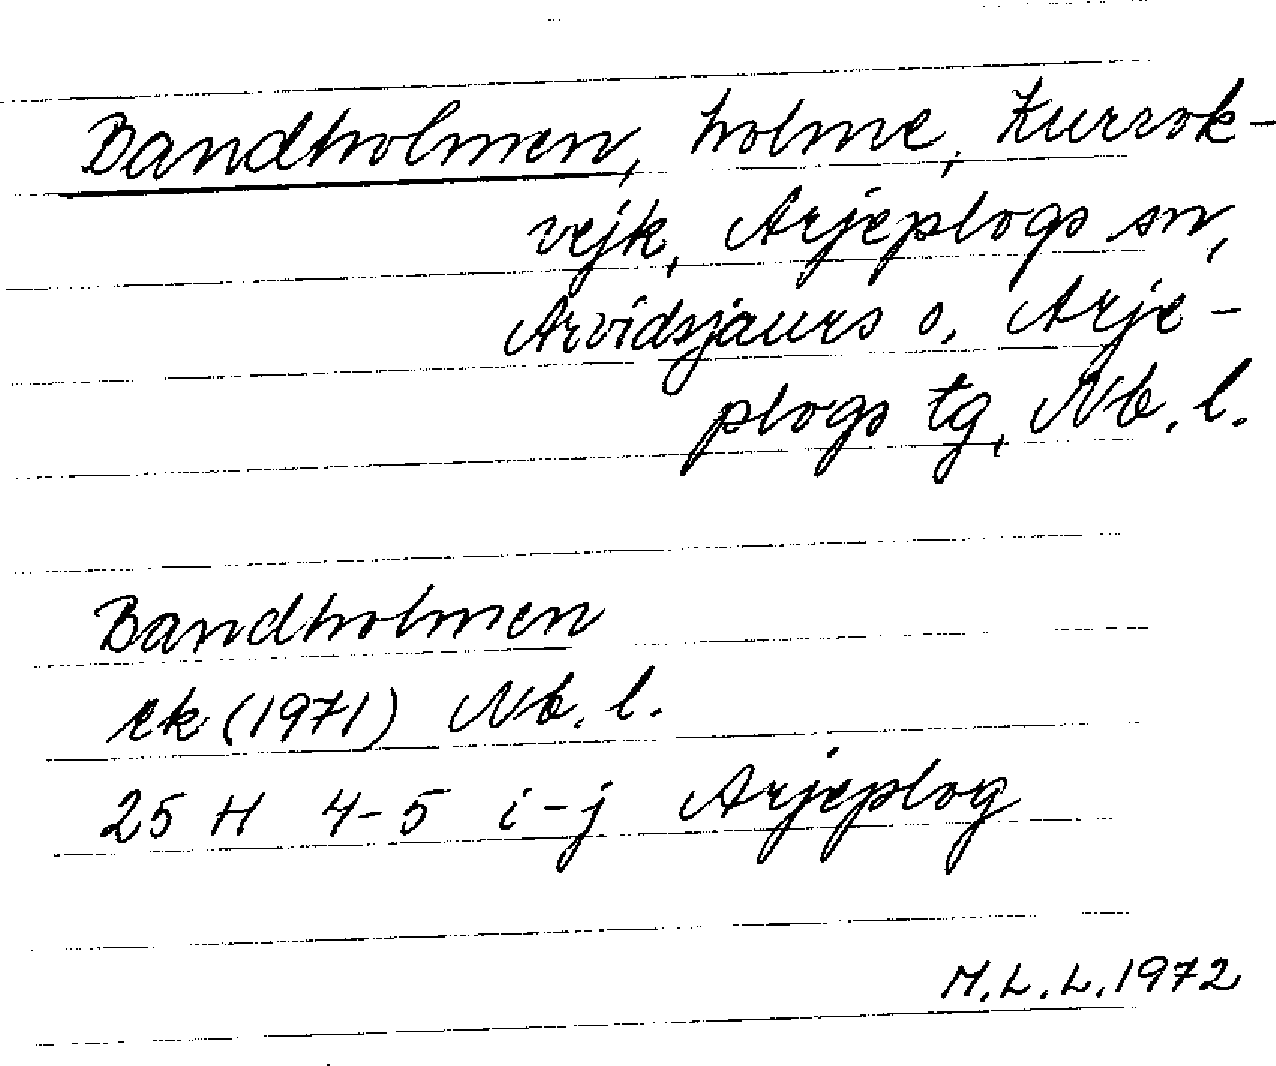 Bandholmen, holme, Kurrok-
vejk, Arjeplogs sn,
Arvidsjaurs o. Arje-
plogs tg, Nb. l.
Bandholmen
ek (1971) Nb. l.
25 H 4-5 i-j Arjeplog
M.L.L. 1972